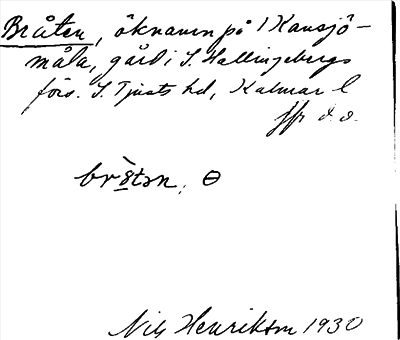 Bråten, öknamn på 1 Kansjö-
måla, gård i S. Hallingebergs
förs. S. Tjusts hd, Kalmar l
ffr d. o.
Nils Henrikson 1930